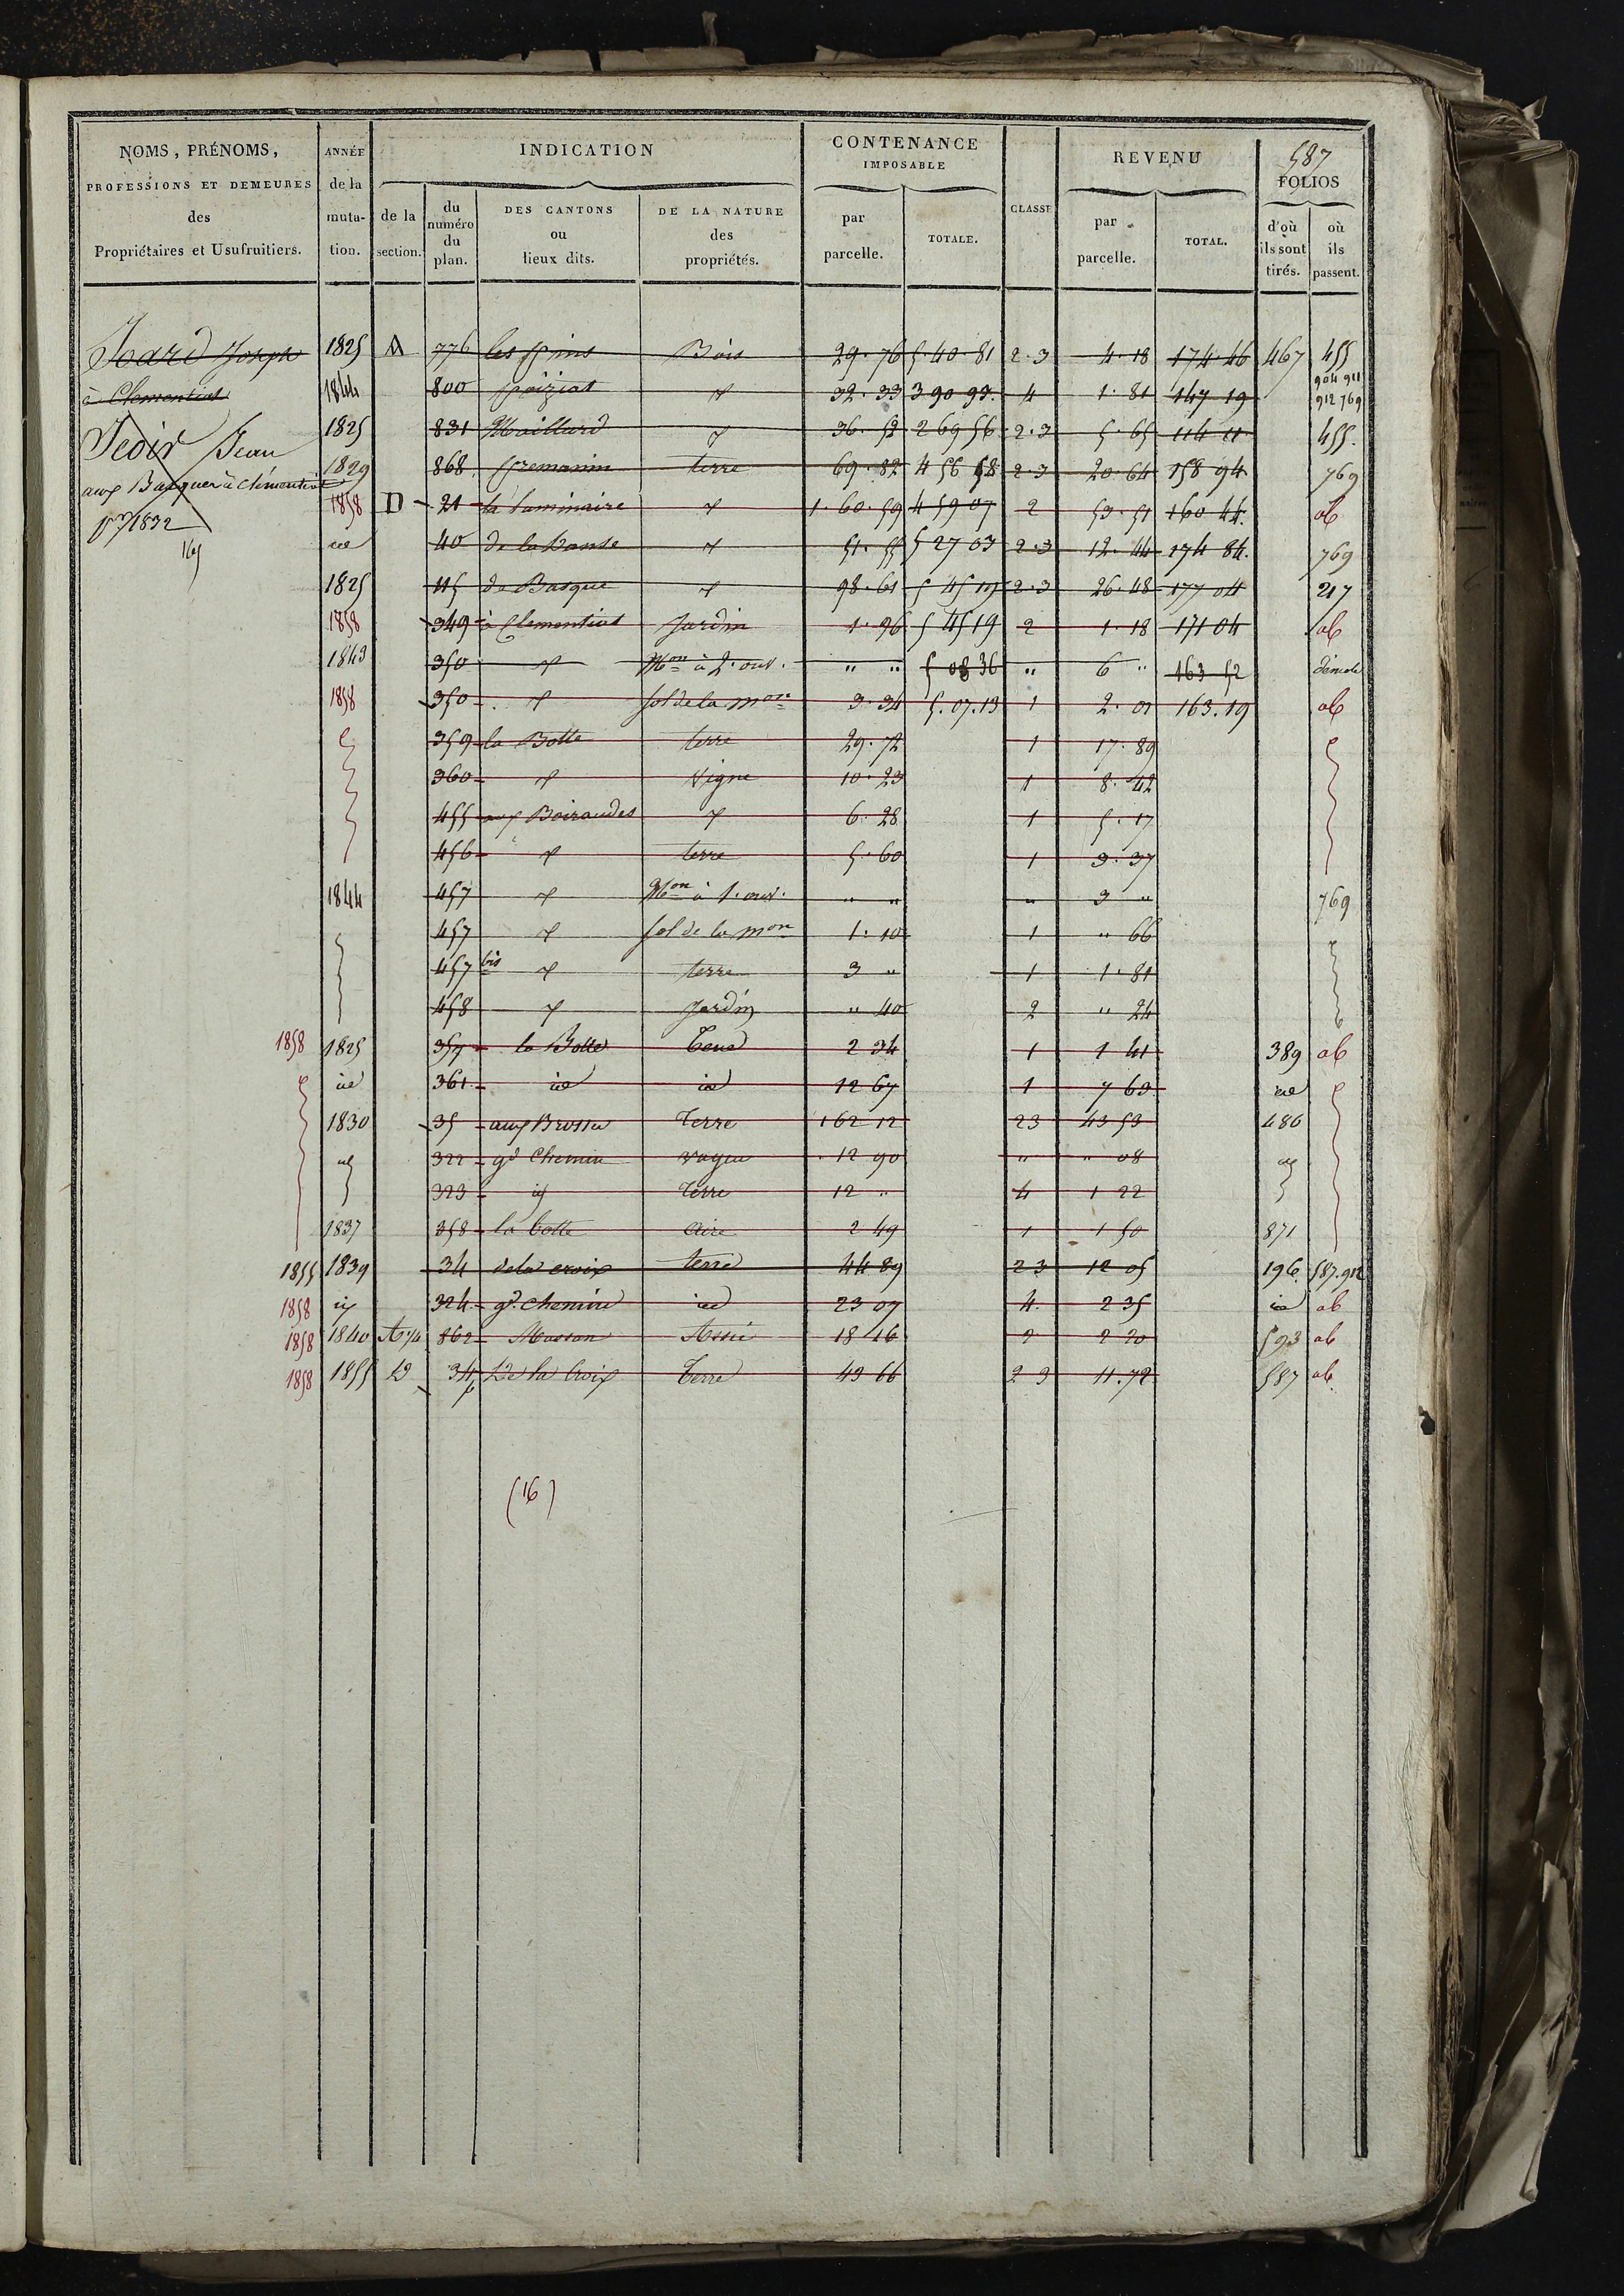 587
NOMS, PRÉNOMS, PROFESSIONS ET DEMEURES des Propriétaires et Usufruitiers.
ANNÉE de la muta-tion.
INDICATION
de la section.
du numéro du plan.
DES CANTONS ou lieux dits.
DE LA NATURE des propriétés.
CONTENANCE IMPOSABLE
par parcelle.
TOTALE.
CLASSE
REVENU
par parcelle.
TOTAL.
FOLIOS
d'où ils sont tirés.
où ils passent.
Joseph 1825 A 776 les pins Bois 29.76 5 40.81 2.3 4.18 174 46 467 455
à Clementiat 1844 800 poiziat 32.33 3 90 93 4 1.81 147 19 904 911 912 769
Jean 1825 831 Maillard 36.52 2 69 56 2.3 5.65 114 11 455.
1829 868 premanin terre 69.82 4 56 58 2.3 20.64 158 94 769
aux à Clémentiat 1858 D 21 la 1.60.59 4 59 07 2 53.51 160 44. ab
1832 id 40 de la 51.55 5 27 03 2.3 12.44 174 84. 769
1825 115 de Basque 98.61 5 45 19 2.3 26.48 177 04 217
1858 349 à Clementiat Jardin 1.96 5 45 19 2 1.18 171 04 ab
1843 350 Mon à 2. ouv. " " 5 08 36 " 6 " 163 52
1858 350 sol de la mon 3.34 5.07.13 1 2.01 163.19 ab
359 la Botte terre 29.72 1 17.89
360 Vigne 10.23 1 8.42
455 aux Boiraudes 6.28 1 5.17
456 terre 5.60 1 3.37
1844 457 Mon à 1. ouv. " " " 3 " 769
457 sol de la mon 1.10 1 " 66
457 bis terre 3 " 1 1.81
458 Jardin " 40 2 " 24
1858 1825 357 la Botte 2 34 1 1 41 389 ab
id 361 id id 12 67 1 7 63 id
1830 35 aux Brosses Terre 162 12 23 43 53 486
322 gd Chemin 12 90 " " 08
323 Terre 12 " 4 1 22
1837 358 la botte aire 2 49 1 1 50 871
1855 1839 34 de la croix terre 44 89 23 12 05 196 587.912
1858 324 gd. chemin id 23 07 4. 2 35 id ab
1858 1840 862 Masson 18 16 2 2 20 593 ab
1858 1855 D 34p De la Croix Terre 43 66 2 3 11.72 587 ab
(16)